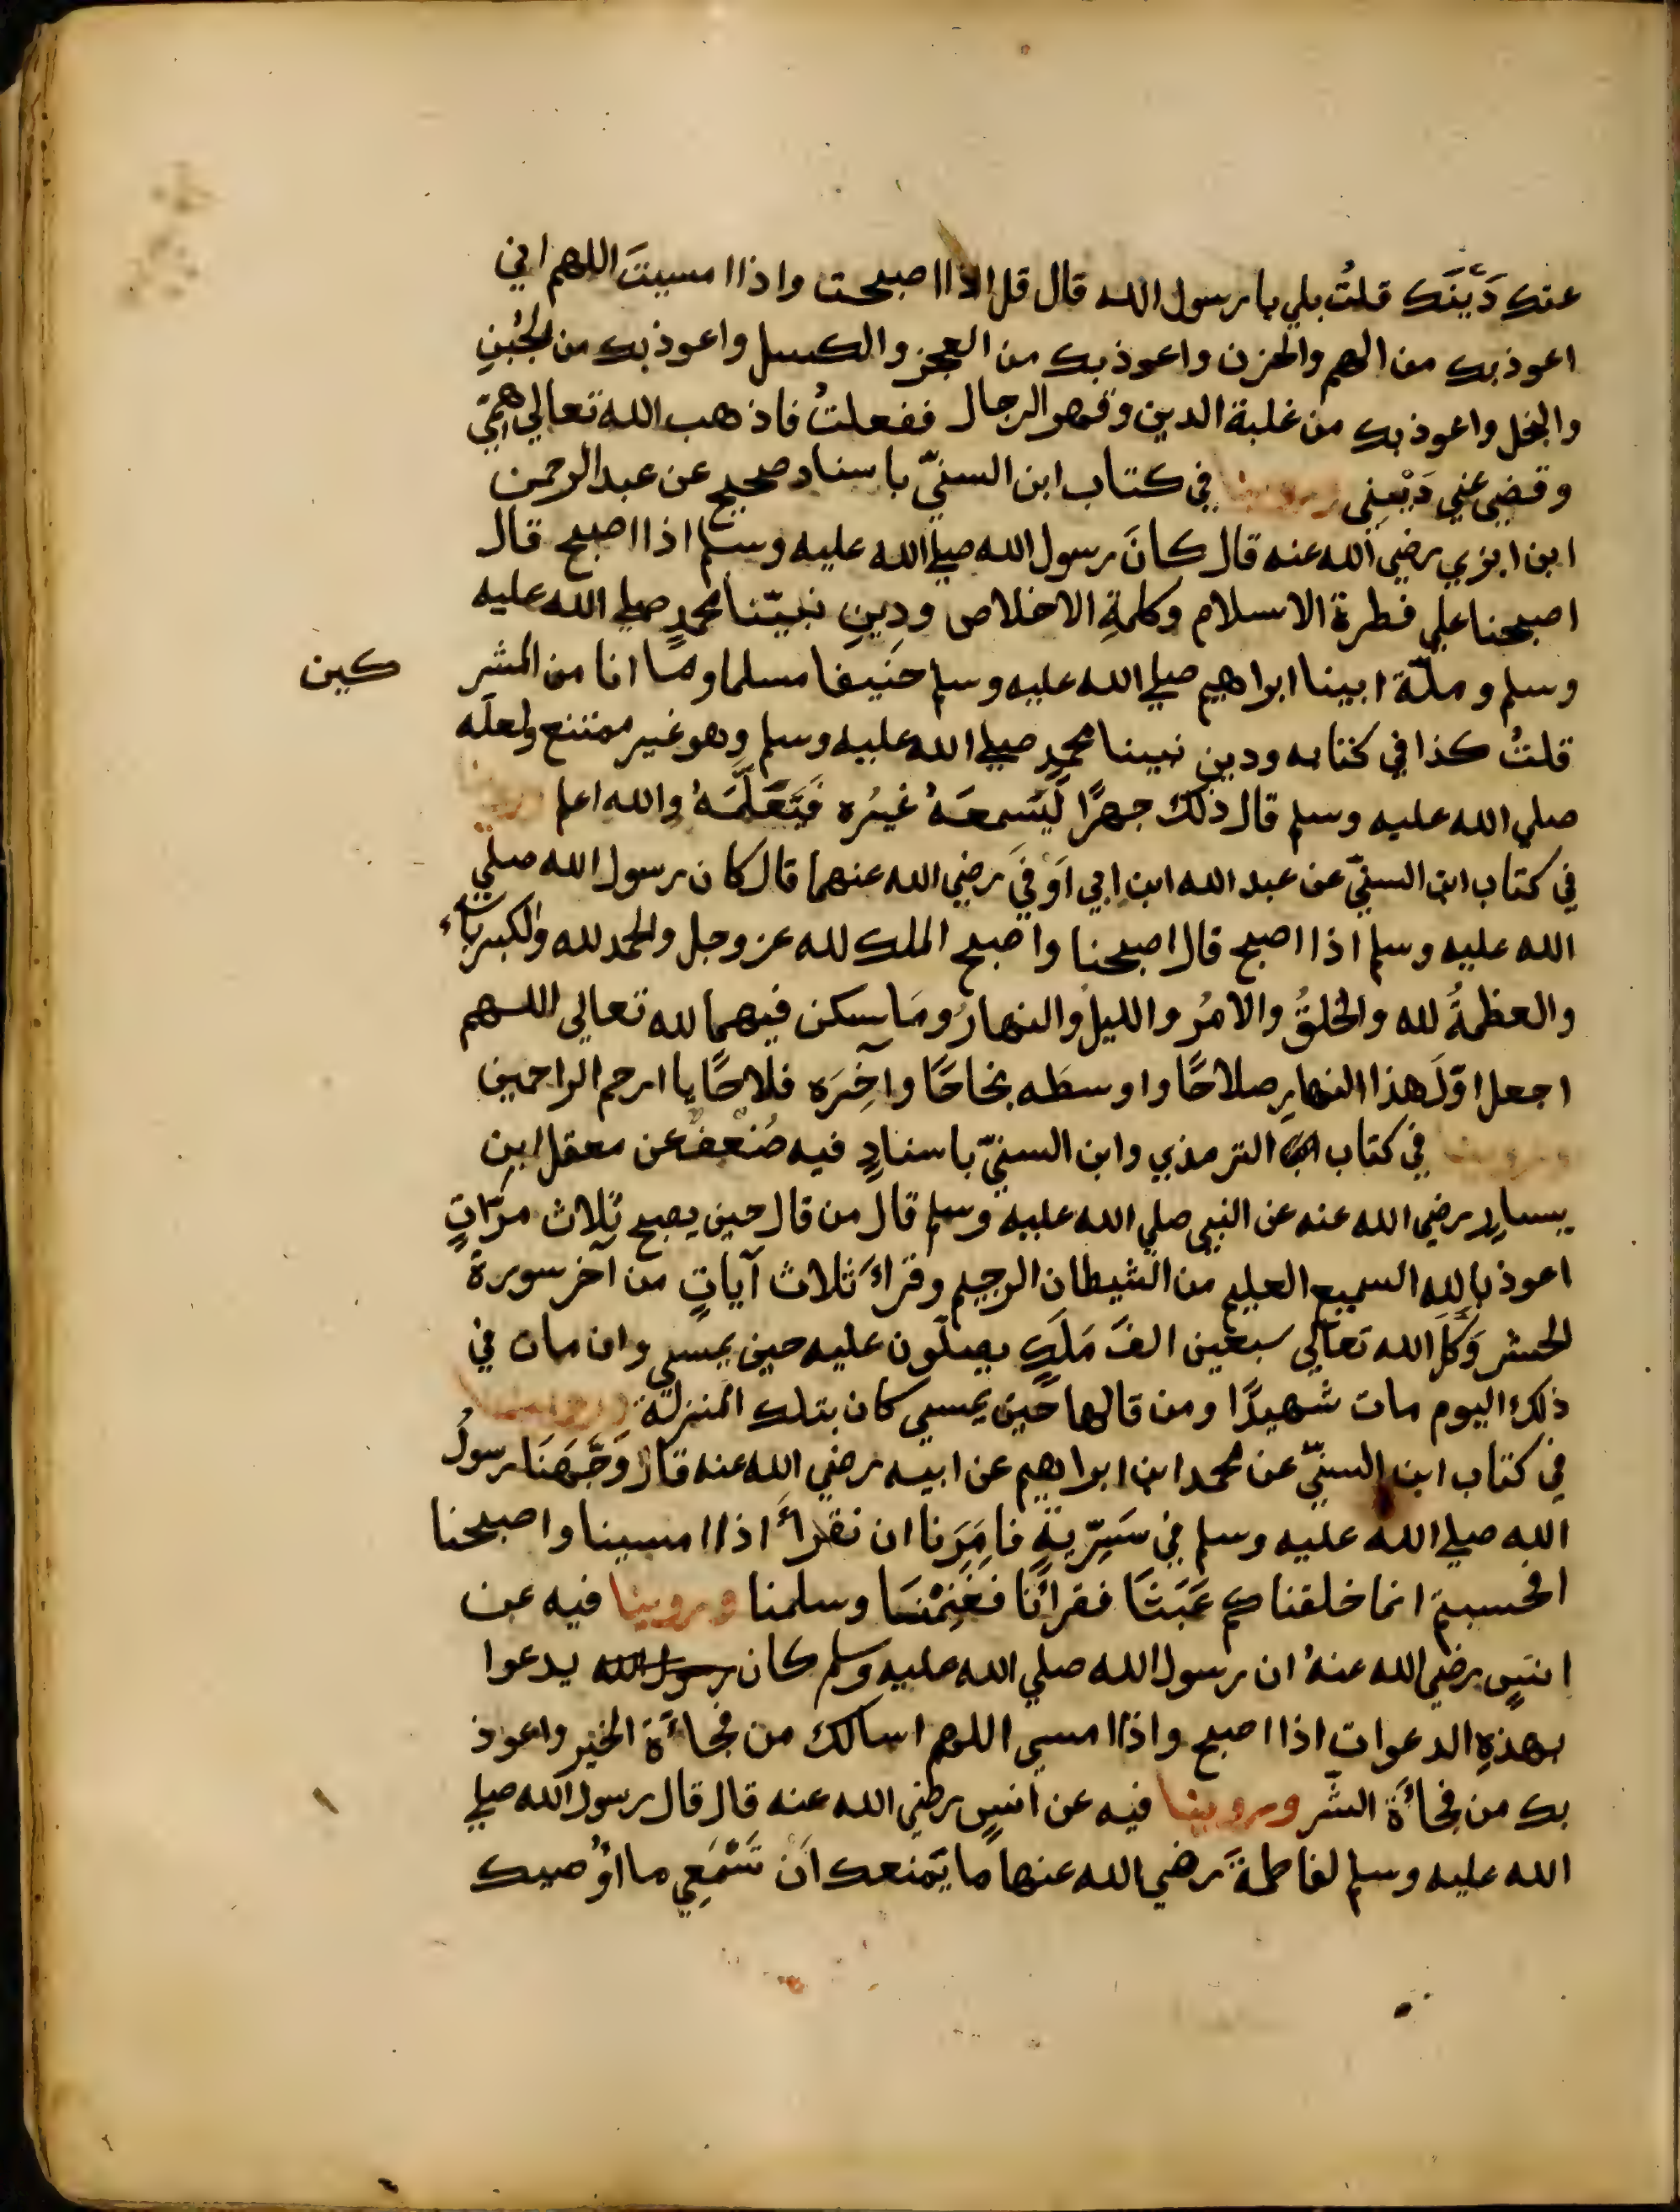 عنك دَيْنَك قلتُ بلي يا رسول الله قال قل اذا اصبحت واذا امسيتَ اللهم اني
اعوذ بك من الهم والحزن واعوذ بك من العجز والكسل واعوذ بك من الجُبنِ
والبخل واعوذ بك من غلبة الدين وقهر الرجال ففعلتُ فاذهب الله تعالي همّي
وقضي عني دَيْنِي وروينا في كتاب ابن السنيّ باسناد صحيح عن عبد الرحمن
ابن ابزي رضي الله عنه قال كانَ رسول الله صلي الله عليه وسلم اذا اصبح قال
اصبحنا علي فطرة الاسلام وكلمةِ الاخلاص ودِينِ نبيّنا محمدٍ صلي الله عليه
وسلم وملّة ابينا ابراهيم صلي الله عليه وسلم حَنيفا مسلما وما انا من المشر كين
قلتُ كذا في كتابه ودين نبينا محمدٍ صلي الله عليه وسلم وهو غير ممتنع ولعله
صلي الله عليه وسلم قال ذلك جهرًا لِيَسمعَهُ غيرُه فَيَتَعَلَّمَهُ والله اعلم روينا
في كتاب ابن السنيّ عن عبد الله ابن ابي اَوْفيَ رضي الله عنهما قال كان رسول الله صلي
الله عليه وسلم اذا اصبح قال اصبحنا واصبح الملك لله عز وجل والحمد لله والكبرياء
والعظمةُ لله والخلقُ والامرُ والليلُ والنهارُ ومَا سكن فيهما لله تعالي اللهم
اجعل اوّلَ هذا النهارِ صلاحًا واوسطَه نجاحًا وآخِرَه فلاحًا يا ارحم الراحمين
وروينا في كتاب الترمذي وابن السنيّ باسنادٍ فيه ضُعفٌ عن معقل ابن
يسارٍ رضي الله عنه عن النبي صلي الله عليه وسلم قال من قال حين يصبح ثلاث مرّاتٍ
اعوذ بالله السميع العليم من الشيطان الرجيم وقراَ ثلاث آياتٍ من آخر سورة
الحشر وَكَّلَ الله تعالي سبعين الفَ مَلَكٍ يصلّون عليه حين يمسي وان مات في
ذلك اليوم مات شهيدًا ومن قالها حين يمسي كان بتلك المنزلة وروينا
في كتاب ابن السنيّ عن محمد ابن ابراهيم عن ابيه رضي الله عنه قال وَجَّهَنَا رسولُ
الله صلي الله عليه وسلم في سَرِيّةٍ فامَرَنا ان نقرأَ اذا امسينا واصبحنا
افحسبتم انما خلقناكم عَبَثًا فقرأنَا فَغَنِمْنَا وسلمنا وروينا فيه عن
انسٍ رضي الله عنهُ ان رسول الله صلي الله عليه وسلم كان رسول الله يدعوا
بهذهِ الدعوات اذا اصبح واذا امسي اللهم اسالك من فجاءَة الخير واعوذ
بك من فجاءَة الشّر وروينا فيه عن انسٍ رضي الله عنه قال قال رسول الله صلي
الله عليه وسلم لفاطمةَ رضي الله عنها ما يَمنعك اَنْ تَسْمَعِي ما اُوصيك